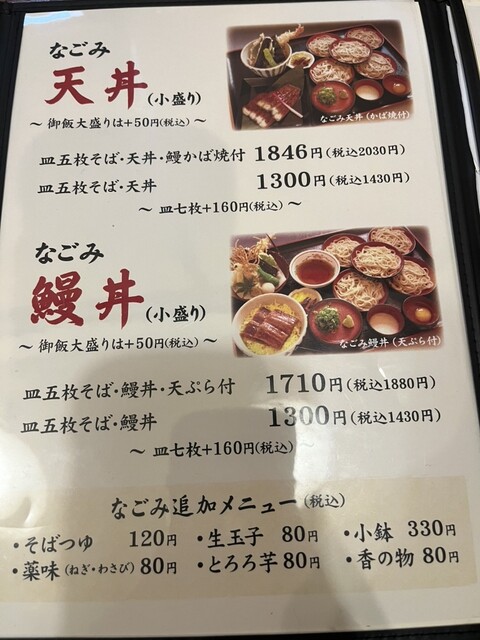 なごみ
天丼(小盛り)
～ 御飯大盛りは+50円(税込) ～
なごみ天丼 (かば焼付)
皿五枚そば・天丼・鰻かば焼付 1846円(税込2030円)
皿五枚そば・天丼 1300円(税込1430円)
～ 皿七枚+160円(税込) ～
なごみ
鰻丼(小盛り)
～ 御飯大盛りは+50円(税込) ～
なごみ鰻丼 (天ぷら付)
皿五枚そば・鰻丼・天ぷら付 1710円(税込1880円)
皿五枚そば・鰻丼 1300円(税込1430円)
～ 皿七枚+160円(税込) ～
なごみ追加メニュー(税込)
・そばつゆ 120円 ・生玉子 80円 ・小鉢 330円
・薬味(ねぎ・わさび) 80円 ・とろろ芋 80円 ・香の物 80円